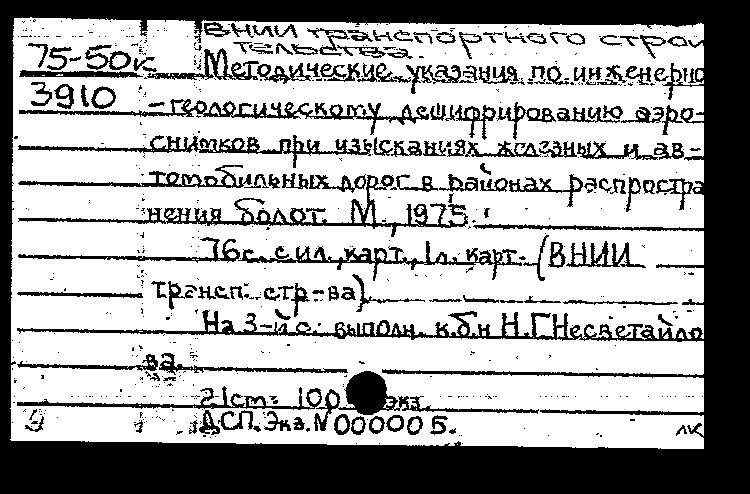 ВНИИ транспортного строи
тельства.
75-50к
Методические указания по инженерно
3910
-геологическому дешифрированию аэро-
снимков при изысканиях железных и ав-
томобильных дорог в районах распростра
нения болот. М., 1975.
76с. с ил., карт., 1л. карт. (ВНИИ
трансп. стр-ва).
На 3-й с: выполн. к.б.н Н.Г.Несветайло
ва.
21см. 100 экз.
ДСП. Экз. N 000005.
лк